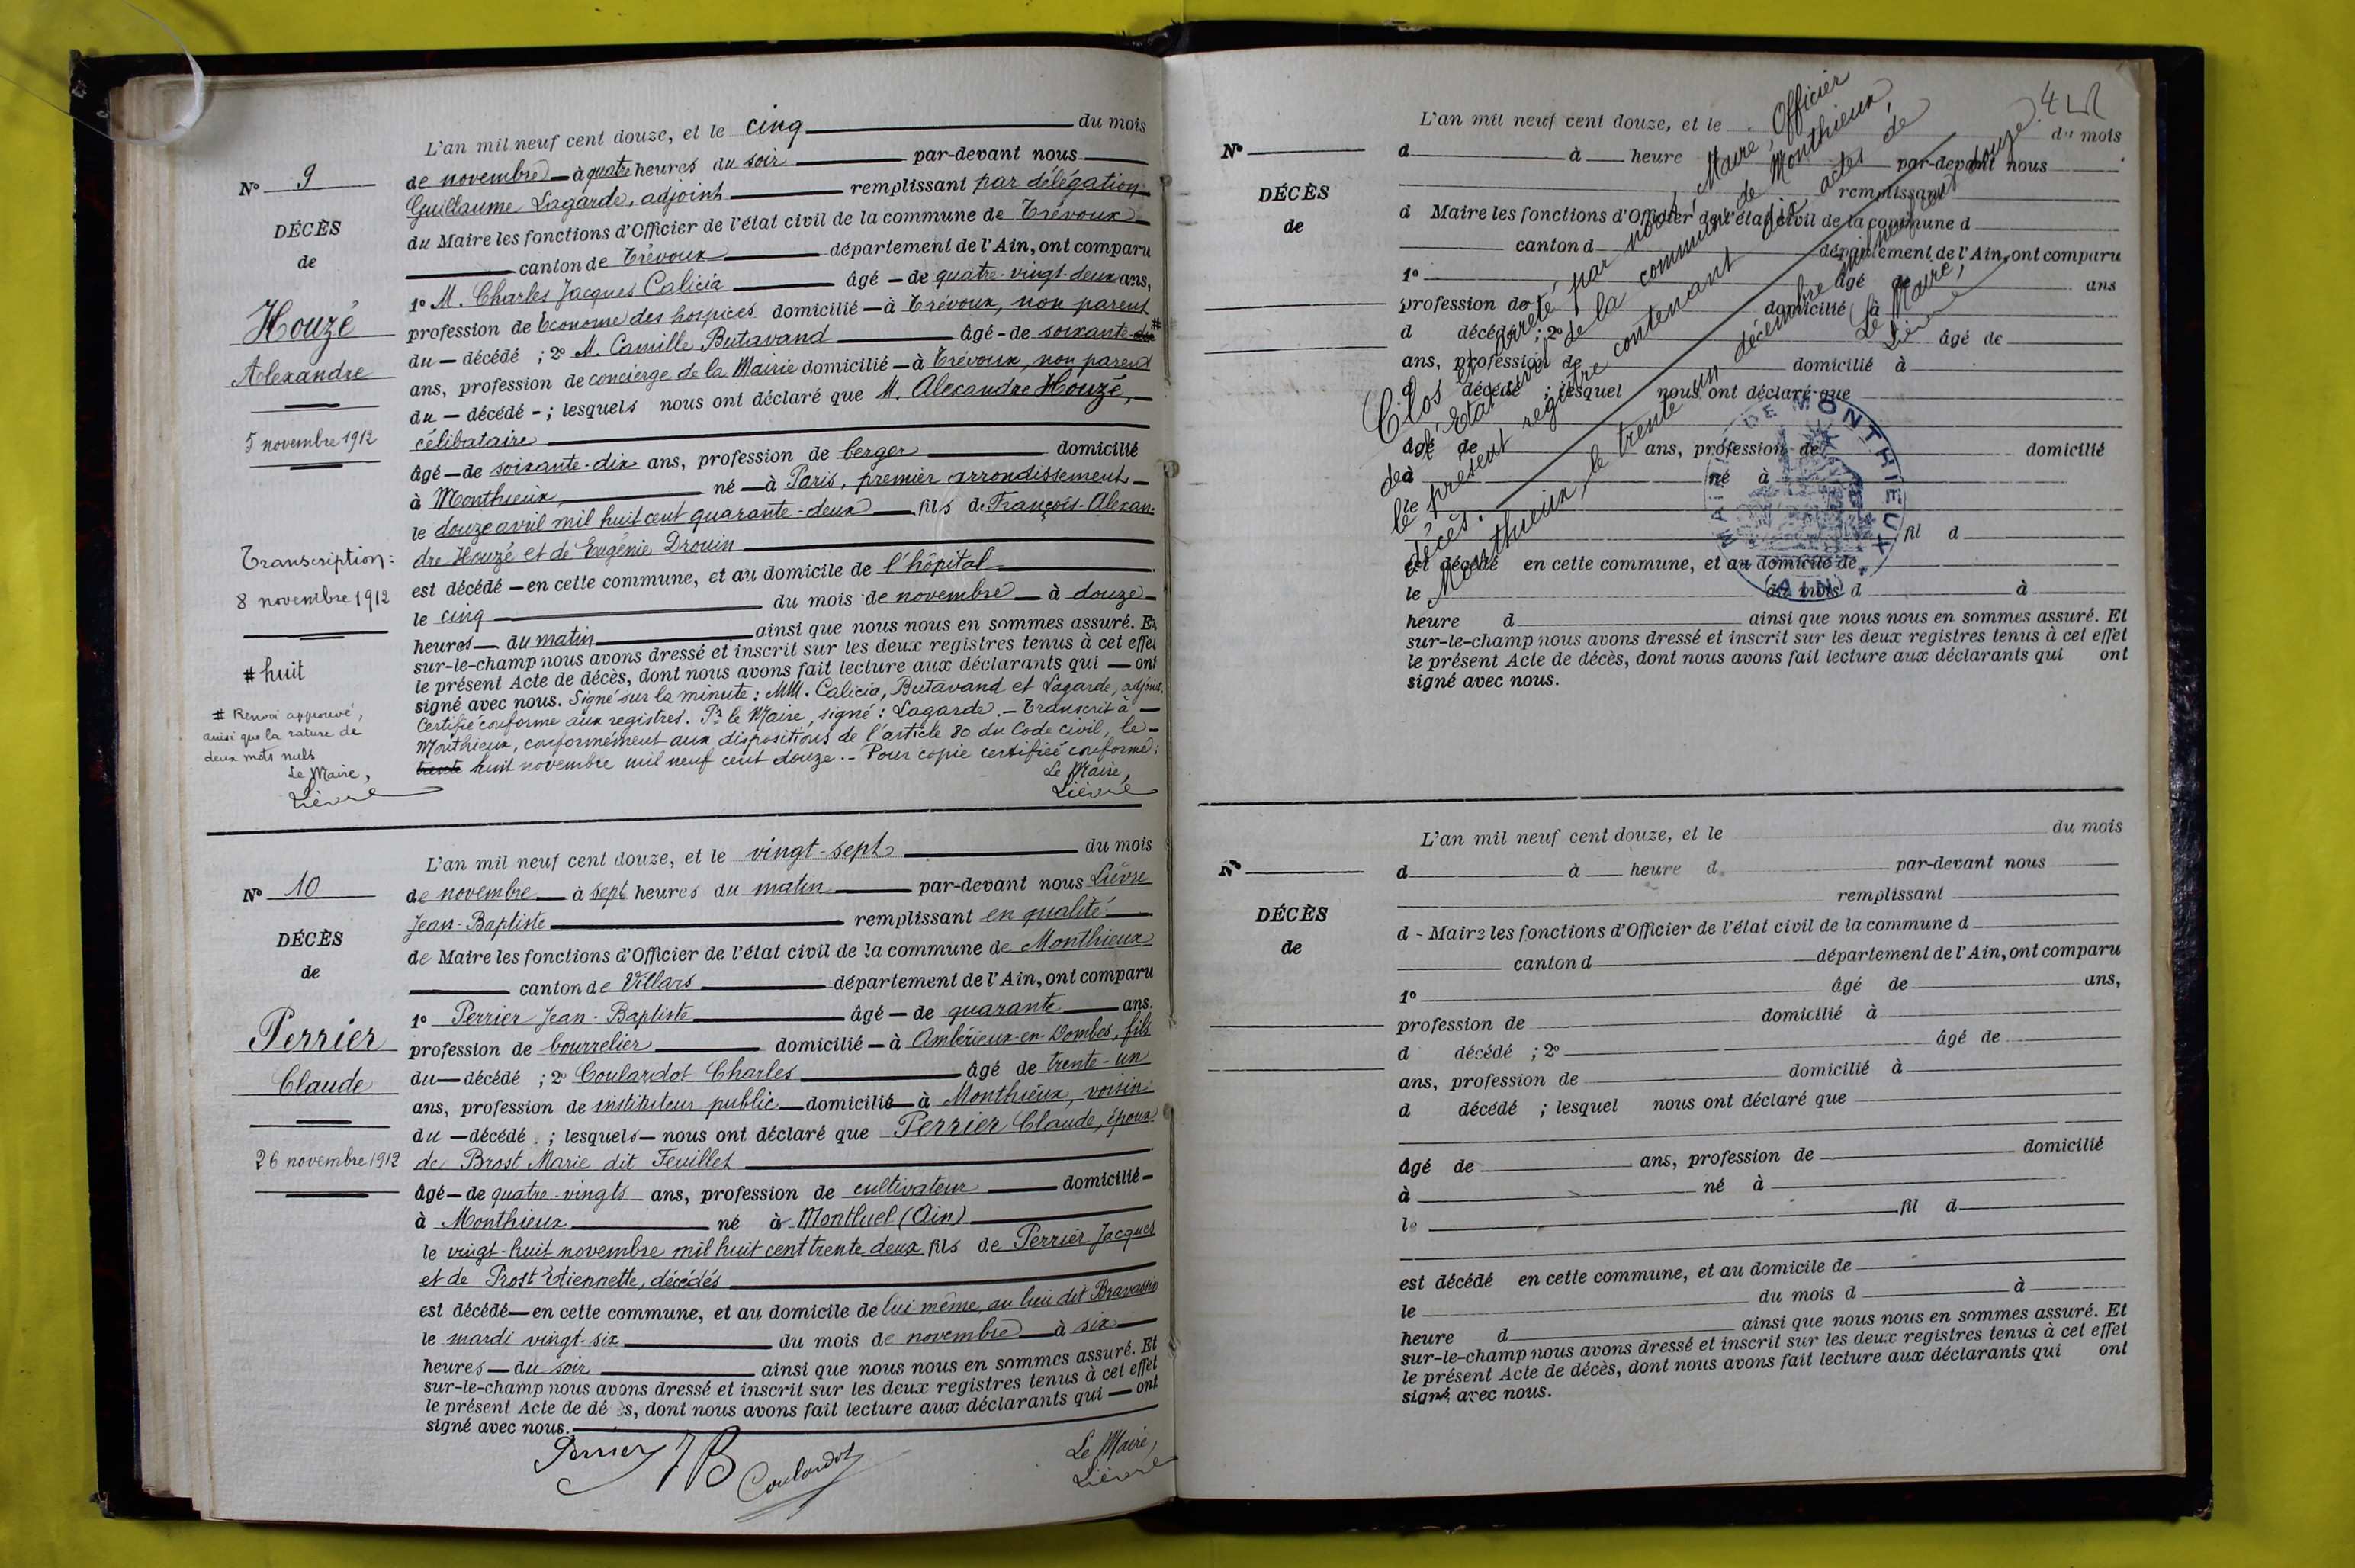 L'an mil neuf cent douze, et le cinq du mois
N° 9
de novembre à quatre heures du soir par-devant nous
Guillaume Lagarde, adjoint remplissant par délégation
DÉCÈS
du Maire les fonctions d'Officier de l'état civil de la commune de Trévoux
de
canton de Trévoux département de l'Ain, ont comparu
1° M. Charles Jacques Calicia âgé de quatre-vingt-deux ans,
Houzé
profession de Econome des hospices domicilié à Trévoux, non parent
du décédé ; 2° M. Camille Butavand âgé de soixante-dix #
Alexandre
ans, profession de concierge de la Mairie domicilié à Trévoux, non parent
du décédé ; lesquels nous ont déclaré que M. Alexandre Houzé,
5 novembre 1912
célibataire
âgé de soixante-dix ans, profession de berger domicilié
à Monthieux, né à Paris, premier arrondissement
le douze avril mil huit cent quarante-deux fils de François-Alexan-
dre Houzé et de Eugénie Drouin
Transcription :
est décédé en cette commune, et au domicile de l'hôpital
8 novembre 1912
le cinq du mois de novembre à douze
heures du matin ainsi que nous nous en sommes assuré. Et
sur-le-champ nous avons dressé et inscrit sur les deux registres tenus à cet effet
# huit
le présent Acte de décès, dont nous avons fait lecture aux déclarants qui ont
signé avec nous. Signé sur la minute : MM. Calicia, Butavand et Lagarde, adjoint.
# Renvoi approuvé,
Certifié conforme aux registres. Pr le Maire, signé : Lagarde. - Transcrit à
ainsi que la rature de
Monthieux, conformément aux dispositions de l'article 80 du Code civil, le
deux mots nuls
trente huit novembre mil neuf cent douze. - Pour copie certifiée conforme :
Le Maire,
Lièvre
Le Maire,
Lièvre
L'an mil neuf cent douze, et le vingt-sept du mois
N° 10
de novembre à sept heures du matin par-devant nous Lièvre
Jean-Baptiste remplissant en qualité
DÉCÈS
de Maire les fonctions d'Officier de l'état civil de la commune de Monthieux
de
canton de Villars département de l'Ain, ont comparu
1° Perrier Jean-Baptiste âgé de quarante ans.
Perrier
profession de bourrelier domicilié à Ambérieux-en-Dombes, fils
Claude
du décédé ; 2° Coulardot Charles âgé de trente-un
ans, profession de instituteur public domicilié à Monthieux, voisin
du décédé ; lesquels nous ont déclaré que Perrier Claude, époux
26 novembre 1912
de Brost Marie dit Feuillet
âgé de quatre-vingts ans, profession de cultivateur domicilié
à Monthieux né à Montluel (Ain)
le vingt-huit novembre mil huit cent trente deux fils de Perrier Jacques
et de Prost Etiennette, décédés
est décédé en cette commune, et au domicile de lui même, au lieu dit Bravassin
le mardi vingt-six du mois de novembre à six
heures du soir ainsi que nous nous en sommes assuré. Et
sur-le-champ nous avons dressé et inscrit sur les deux registres tenus à cet effet
le présent Acte de décès, dont nous avons fait lecture aux déclarants qui ont
signé avec nous.
Perrier JB
Coulardot
Le Maire,
Lièvre
L'an mil neuf cent douze, et le du mois
N°
d à heure par-devant nous
remplissant
DÉCÈS
d Maire les fonctions d'Officier de l'état civil de la commune d
de
canton d département de l'Ain, ont comparu
1° âgé de ans
profession de domicilié à
d décédé ; 2° âgé de
ans, profession de domicilié à
d décédé ; lesquel nous ont déclaré que
âgé de ans, profession de domicilié
à né à
le fil d
est décédé en cette commune, et au domicile de
le du mois d à
heure d ainsi que nous nous en sommes assuré. Et
sur-le-champ nous avons dressé et inscrit sur les deux registres tenus à cet effet
le présent Acte de décès, dont nous avons fait lecture aux déclarants qui ont
signé avec nous.
Clos et arrêté par nous, Maire, Officier
de l'Etat civil de la commune de Monthieux,
le présent registre contenant dix actes de
décès.
Monthieux, le trente un décembre mil neuf cent douze.
Le Maire,
Lièvre
MAIRIE DE MONTHIEUX
(AIN)
L'an mil neuf cent douze, et le du mois
N°
d à heure d par-devant nous
remplissant
DÉCÈS
d Maire les fonctions d'Officier de l'état civil de la commune d
de
canton d département de l'Ain, ont comparu
1° âgé de ans,
profession de domicilié à
d décédé ; 2° âgé de
ans, profession de domicilié à
d décédé ; lesquel nous ont déclaré que
âgé de ans, profession de domicilié
à né à
le fil d
est décédé en cette commune, et au domicile de
le du mois d à
heure d ainsi que nous nous en sommes assuré. Et
sur-le-champ nous avons dressé et inscrit sur les deux registres tenus à cet effet
le présent Acte de décès, dont nous avons fait lecture aux déclarants qui ont
signé avec nous.